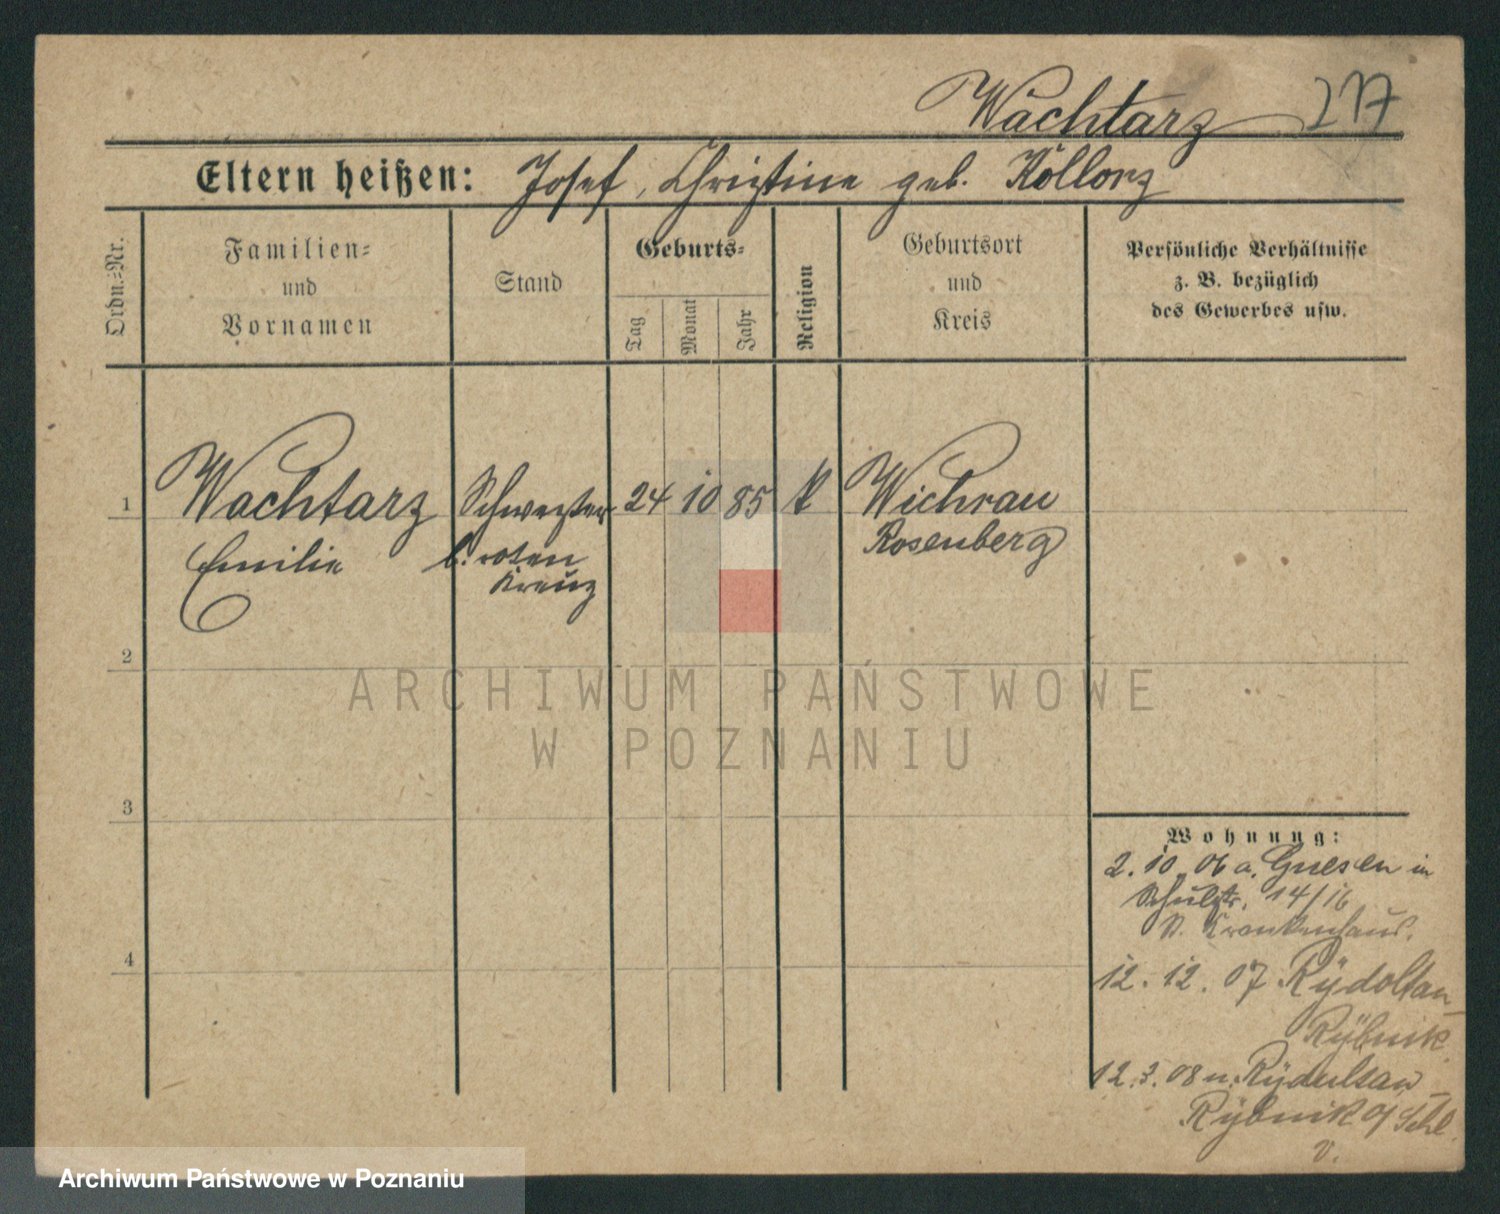 Wachtarz 217
Eltern heißen: Josef, Christine geb. Kollorz
Ordn.=Nr.
Familien=
und
Vornamen
Stand
Geburts=
Tag
Monat
Jahr
Religion
Geburtsort
und
Kreis
Persönliche Verhältnisse
z. B. bezüglich
des Gewerbes usw.
1 Wachtarz Schwester 24 10 85 k Wichrau
Emilie b. roten Rosenberg
Kreuz
2
ARCHIWUM PAŃSTWOWE
W POZNANIU
3
Wohnung:
2. 10. 06 a. Gnesen in
Schulstr. 14/16
St. Krankenhaus.
4
12. 12. 07 Rydoltau
Rybnik.
12. 3. 08 n. Rydultau
Rybnik O/Schl.
v.
Archiwum Państwowe w Poznaniu